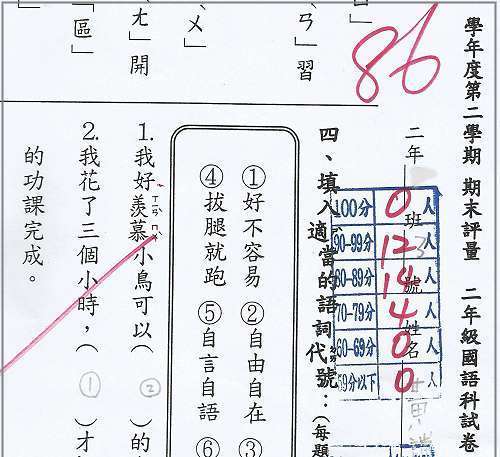 學年度第二學期 期末評量 二年級國語科試卷
二年 班 號 姓名
86
100分 0 人
90-99分 12 人
80-89分 14 人
70-79分 4 人
60-69分 0 人
59分以下 0 人
四、填入適當的語詞代號：(每題
①好不容易 ②自由自在 ③
④拔腿就跑 ⑤自言自語 ⑥
1.我好羨慕小鳥可以( ② )的
2.我花了三個小時，( ① )才
的功課完成。
ㄢ」習
ㄨ」
ㄤ」開
「區」